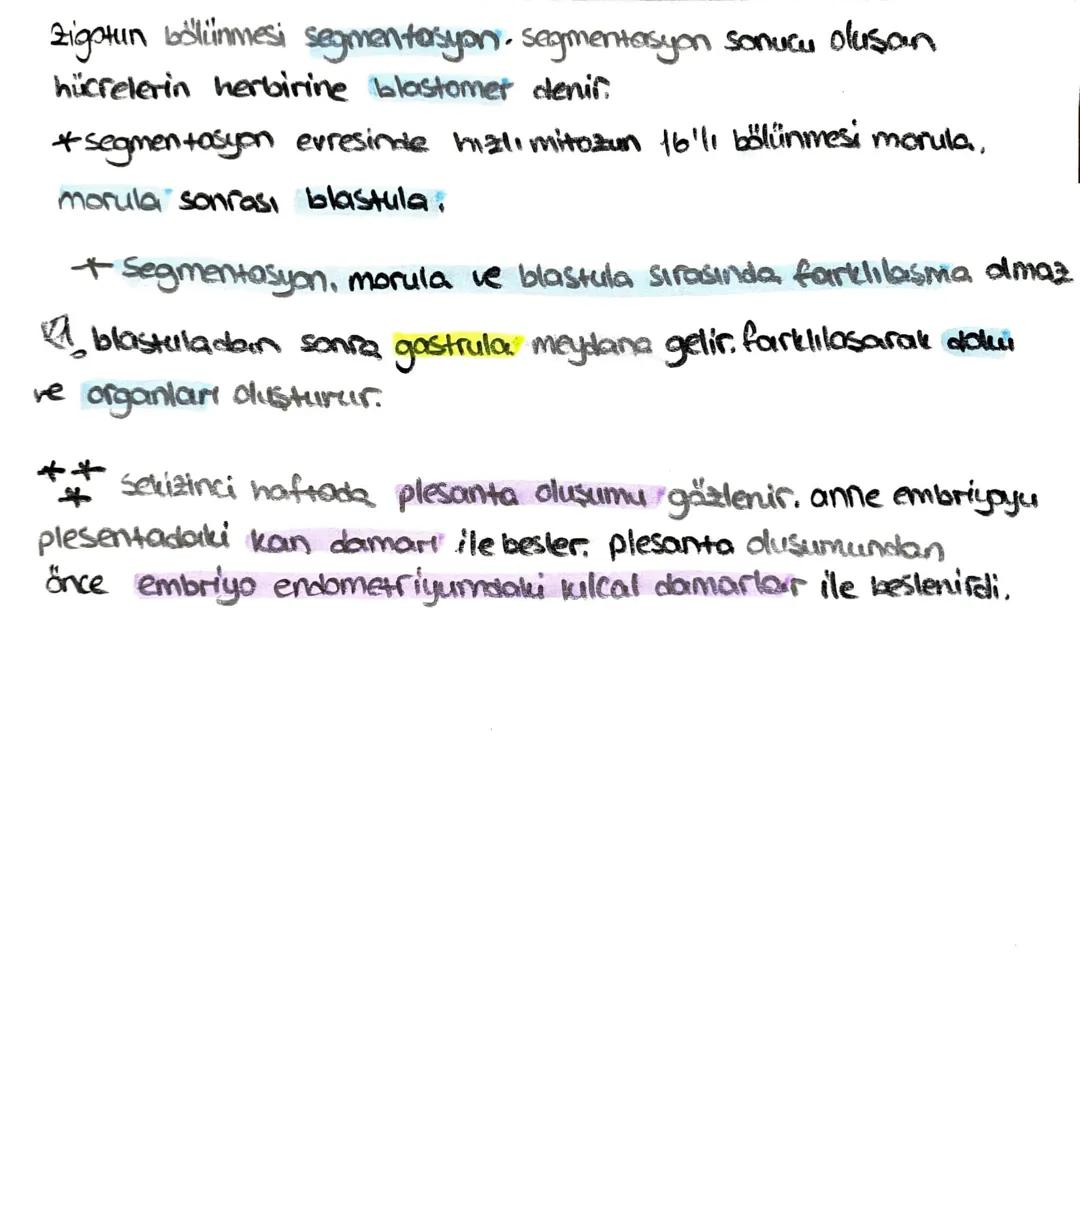 zigotun bölünmesi segmentasyon. segmentasyon sonucu oluşan
hücrelerin herbirine blastomer denir.
*segmentasyon evresinde hızlı mitozun 16'lı bölünmesi morula,
morula sonrası blastula.
+ segmentasyon, morula ve blastula sırasında farklılaşma olmaz
blastuladan sonra gastrula meydana gelir. farklılaşarak doku
ve organları oluşturur.
*** sekizinci haftada plesanta oluşumu gözlenir. anne embriyoyu
plesentadaki kan damarı ile besler. plesanta oluşumundan
önce embriyo endometriyumdaki kılcal damarlar ile beslenirdi.